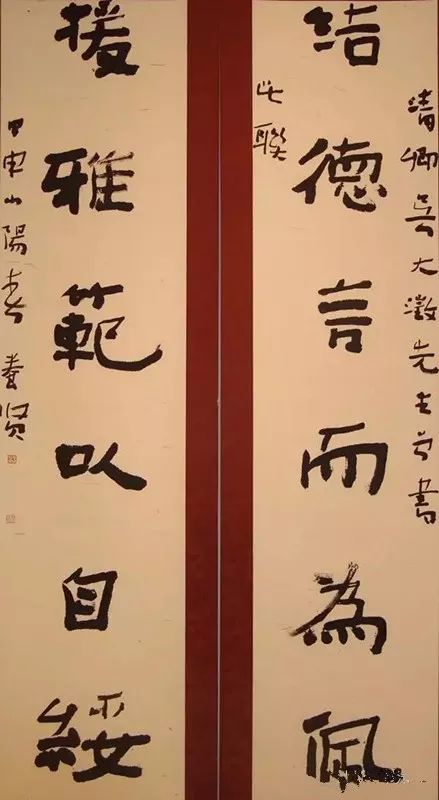 清卿吳大澂先生曾書
結德言而為佩
此聯
援雅範以自綏
甲申山陽